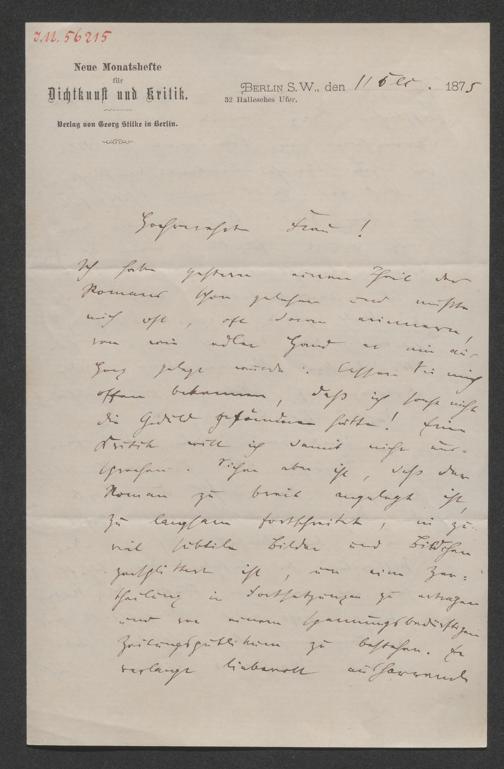 I.N. 56215
Neue Monatshefte
für
Dichtkunst und Kritik.
Verlag von Georg Stilke in Berlin.
BERLIN S.W., den 11 Dec. 1875
32 Hallesches Ufer.
Hochverehrte Frau!
Ich habe gestern einen Theil des
Romans schon gelesen und mußte
mich oft, oft daran erinnern,
von wie edler Hand er mir an's
Herz gelegt wurde. Lassen Sie mich
offen bekennen, daß ich sonst nicht
die Geduld gefunden hätte! Eine
Kritik will ich damit nicht aus-
sprechen. Sicher aber ist, daß der
Roman zu breit angelegt ist,
zu langsam fortschreitet, in zu
viel subtile Bilder und Bildchen
zersplittert ist, um eine Zer-
theilung in Fortsetzungen zu ertragen
und vor einem spannungsbedürftigen
Zeitungspublikum zu bestehen. Er
verlangt liebevoll ausharrende